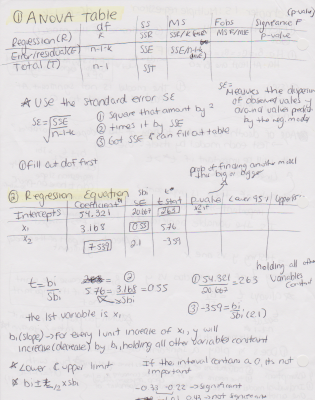 ① ANOVA Table (p-value)
df SS MS Fobs Significance F
Regression(R) SSR SSR/k MSR/MSE p-value
Error/residual(E) n-1-k SSE SSE/n-k
Total (T) n-1 SST
* Use the standard error SE
SE = √SSE / √n-1-k
① Square that amount by 2
② times it by SSE
③ Got SSE & can fill out table
SE =
Measures the dispersion
of observed values y
around values
by the reg. model
① fill out dof first
Prob of finding another model
this big or bigger
② Regression Equation
Coefficients bi Sbi SE t stat P value Lower 95% Upper
Intercepts 54.321 20.667 2.63
x₁ 3.168 0.55 5.76
x₂ 7.539 2.1 -3.59
t = bi / Sbi
② 5.76 = 3.168 / Sbi = 0.55
① 54.321 / 20.667 = 2.63
holding all other
variables
constant
③ -3.59 = bi / Sbi (2.1)
the 1st variable is x₁
b₁ (slope) → For every 1 unit increase of x₁, y will
increase (decrease) by b₁, holding all other variables constant
* Lower & upper limit
* bi ± t α/2 × sbi
If the interval contains a 0, its not
important
-0.33 -0.22 → significant
not significant